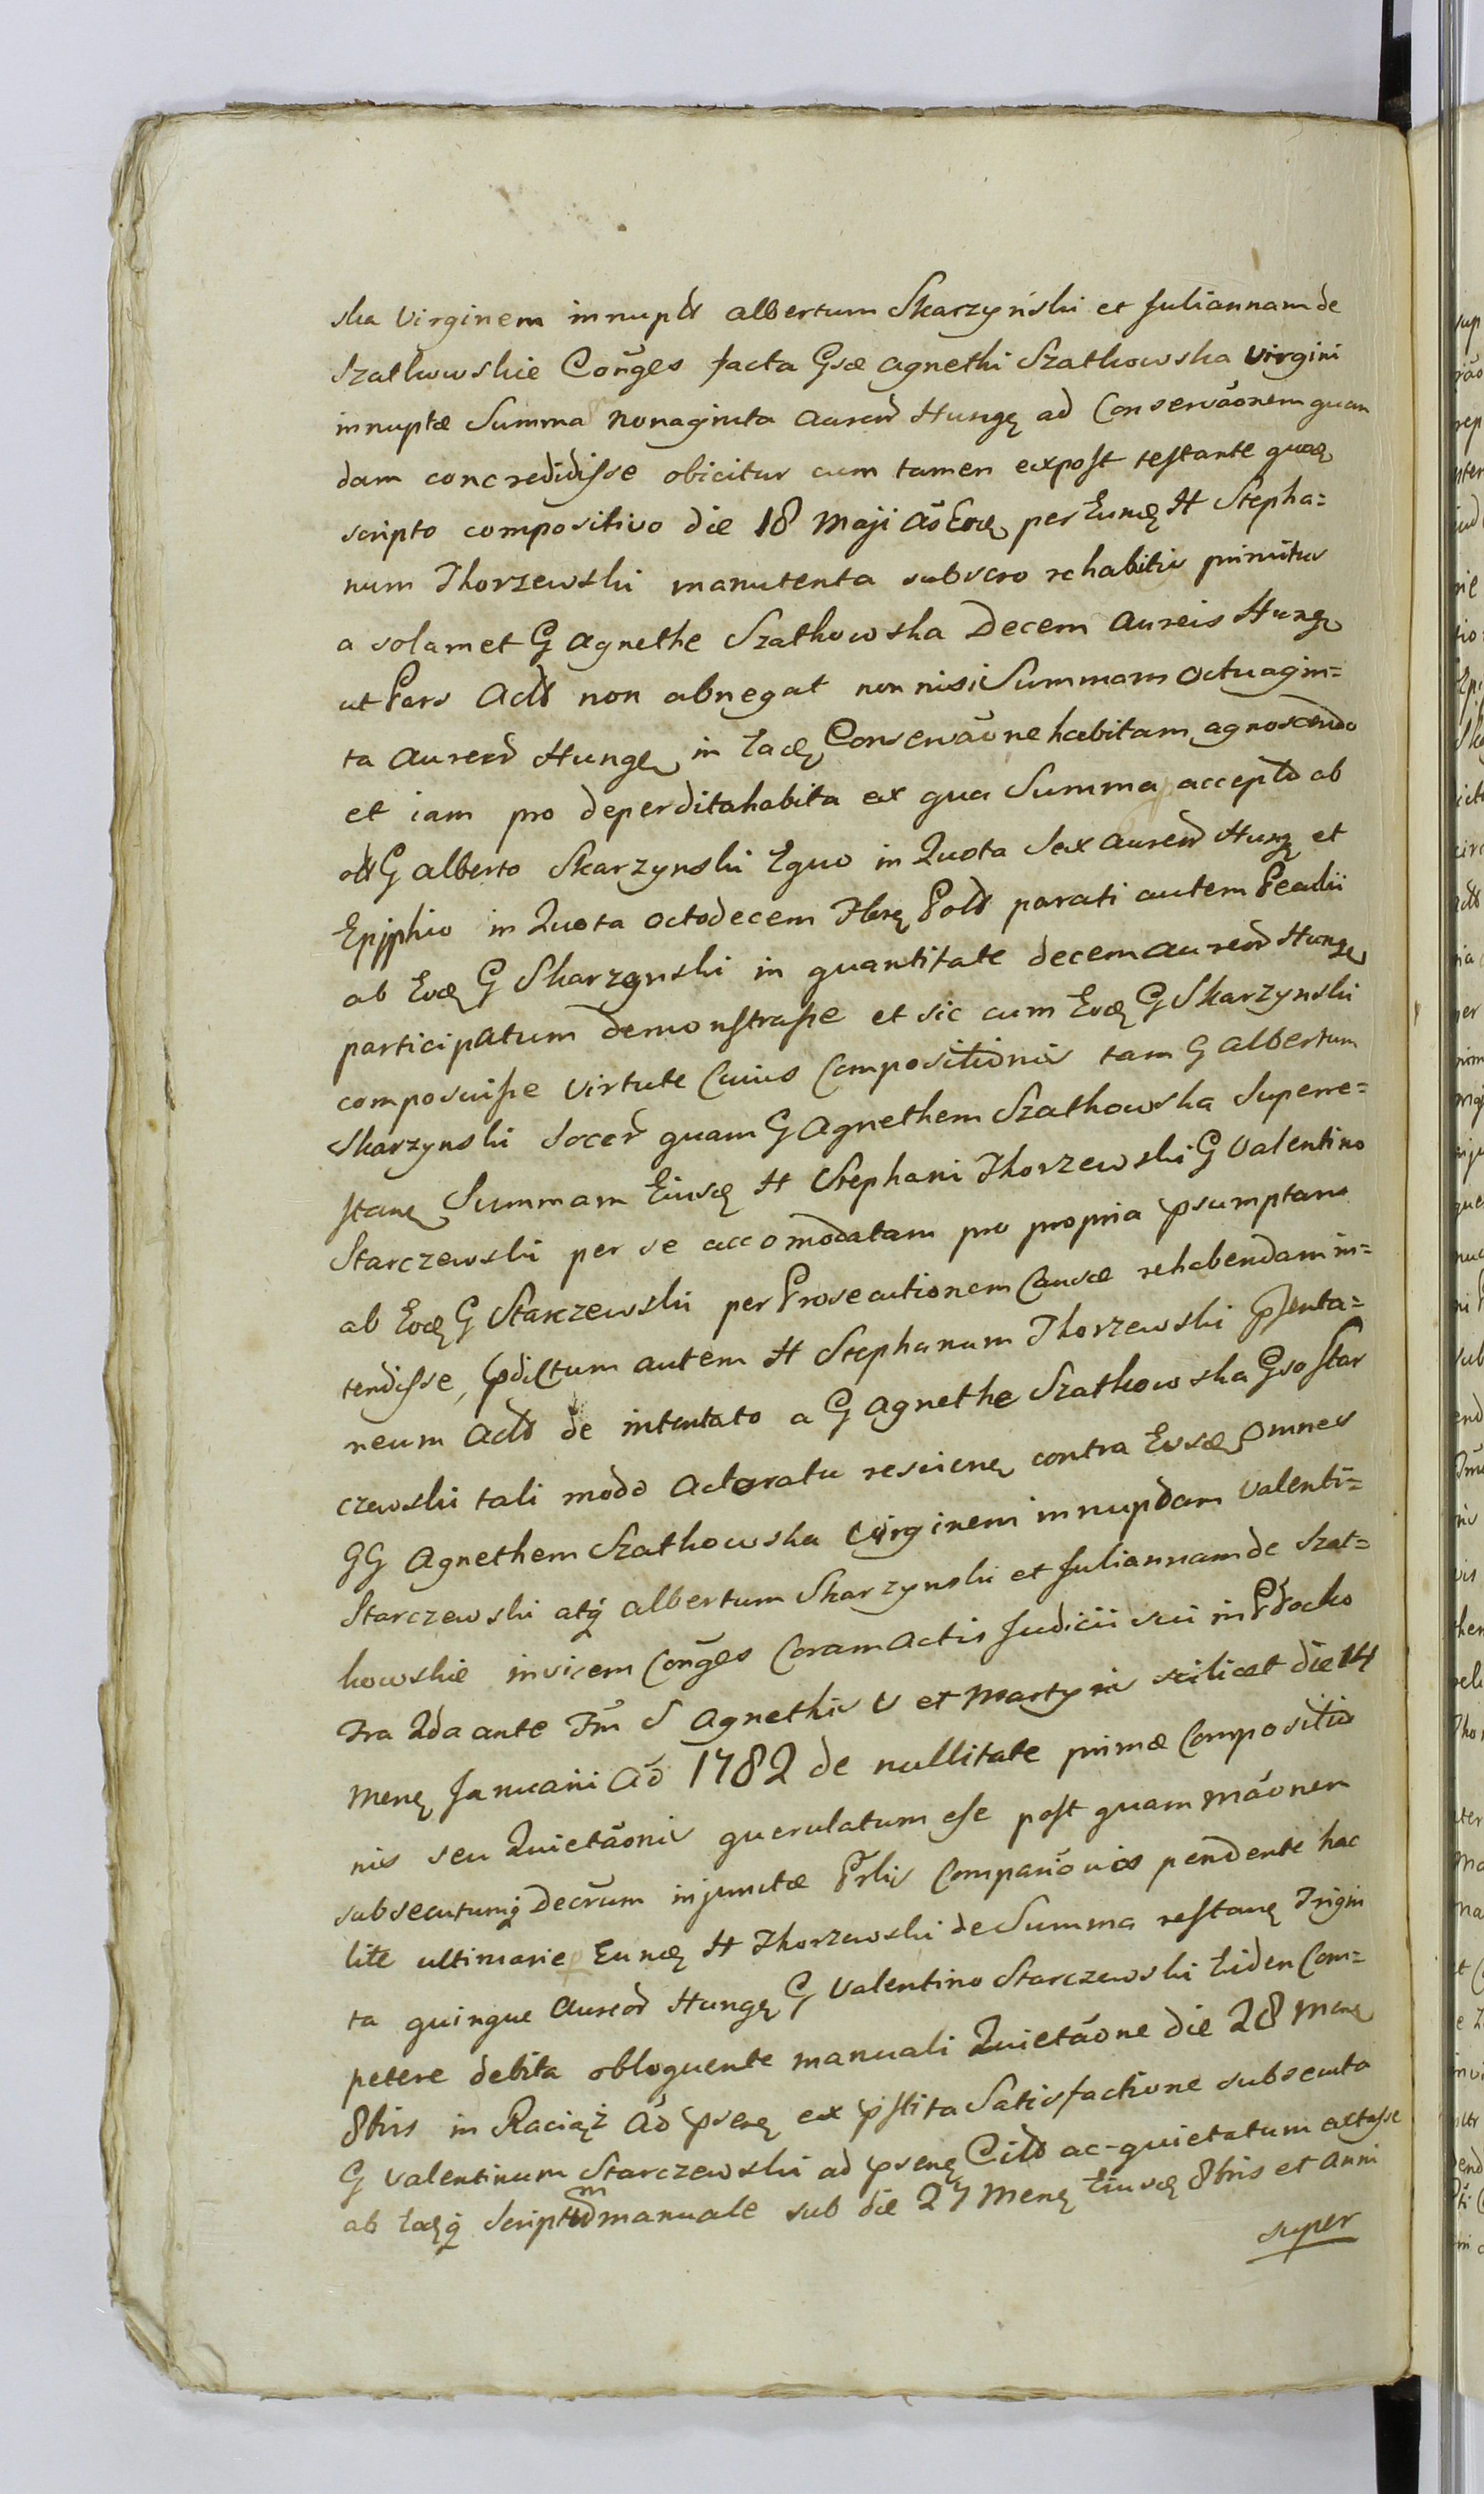 ska Virginem innupt albertum Skarzyński et Juliannam de
Szatkowskie Con̄ges facta Gsæ agnethi Szatkowska virgini
innuptæ Summa nonaginta aureor Hung ad Conservāonem quan
dam concredidisse obicitur cum tamen expost testante
scripto compositivo die 18 Maji per H Stepha=
num Thorzewski manutenta subvero rehabitis primitus
a solamet G Agnethe Szatkowska Decem aureis Hung
ut Pars non abnegat non nisi Summam Octuagin=
ta aureor Hung in Conservāone habitam agnoscendo
et iam pro deperdita habita ex qua Summa accepto ab
G alberto Skarzynski Equo in Quota Sex aureor Hung et
Epjphio in Quota octodecem parati autem
ab G Skarzynski in quantitate decem aureor Hung
participatum demonstrasse et sic cum G Skarzynski
composuisse virtute Cuius Compositionis tam G albertum
Skarzynski quam G Agnethem Szatkowska Superre=
stan Summam H Stephani Thorzewski G Valentino
Starczewski per se accomodatam pro propria psumptam
ab G Starczewski per Prosecutionem Causæ rehabendam in=
tendisse, autem H Stephanum Thorzewski
neum de intentato a G Agnethe Szatkowska Gso Star
czewski tali modo Actoratu contra Omnes
GG Agnethem Szatkowska Virginem innuptam Valenti=
Starczewski atq̨ albertum Skarzynski et Juliannam de Szat=
kowskie invicem Con̄ges Coram Actis Judicii sui in Płocko
Fra 2da ante S Agnethis V et Martyris scilicet die 14
Mens Januarii Aō 1782 de nullitate primæ Compositio
nis seu Quietāonis querulatum esse post quam
subsecutumq̨ Decrum injunctæ Comparōnis pendente hac
lite ultimarie H Thorzewski de Summa restan Trigin
ta quinque aureor Hung G Valentino Starczewski Com=
petere debita obloquente manuali Quietāone die 28 Mens
8bris in Raciąż Aō ex Satisfactione subsecuta
G Valentinum Starczewski ad ac-quietatum
ab Scriptum manuale sub die 27 Mens 8bris et Anni
super